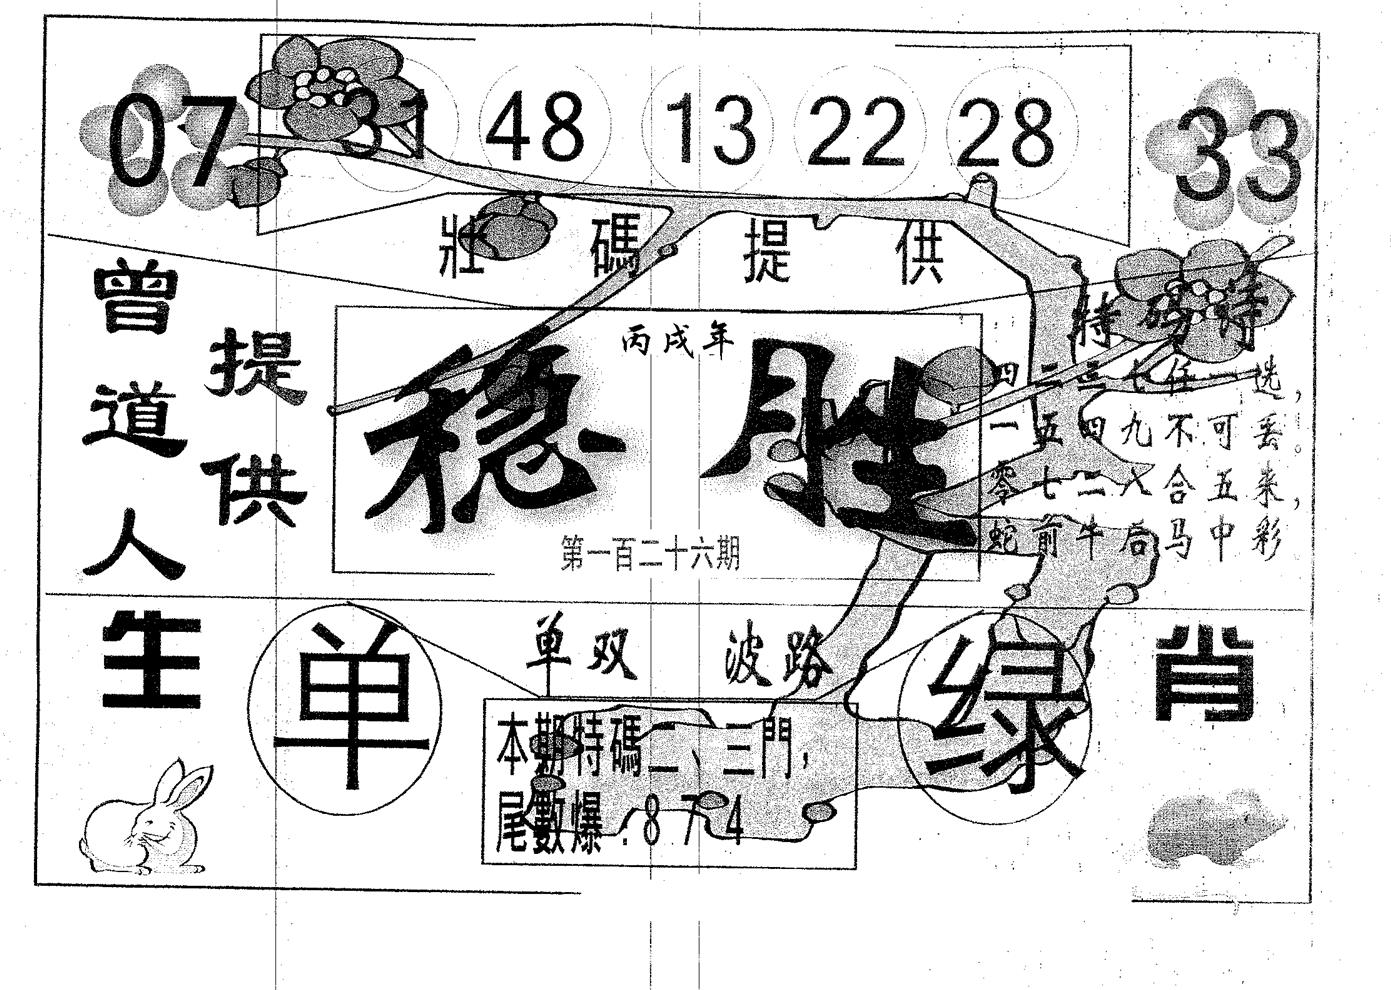 07 31 48 13 22 28 33
壯碼提供
曾道人
提供
丙戌年
稳胜
第一百二十六期
特码诗
四二三七任一选，
一五四九不可丢。
零七二八合五来，
蛇前牛后马中彩
生肖
单
单双 波路
绿
本期特碼二、三門，
尾數爆：8 7 4